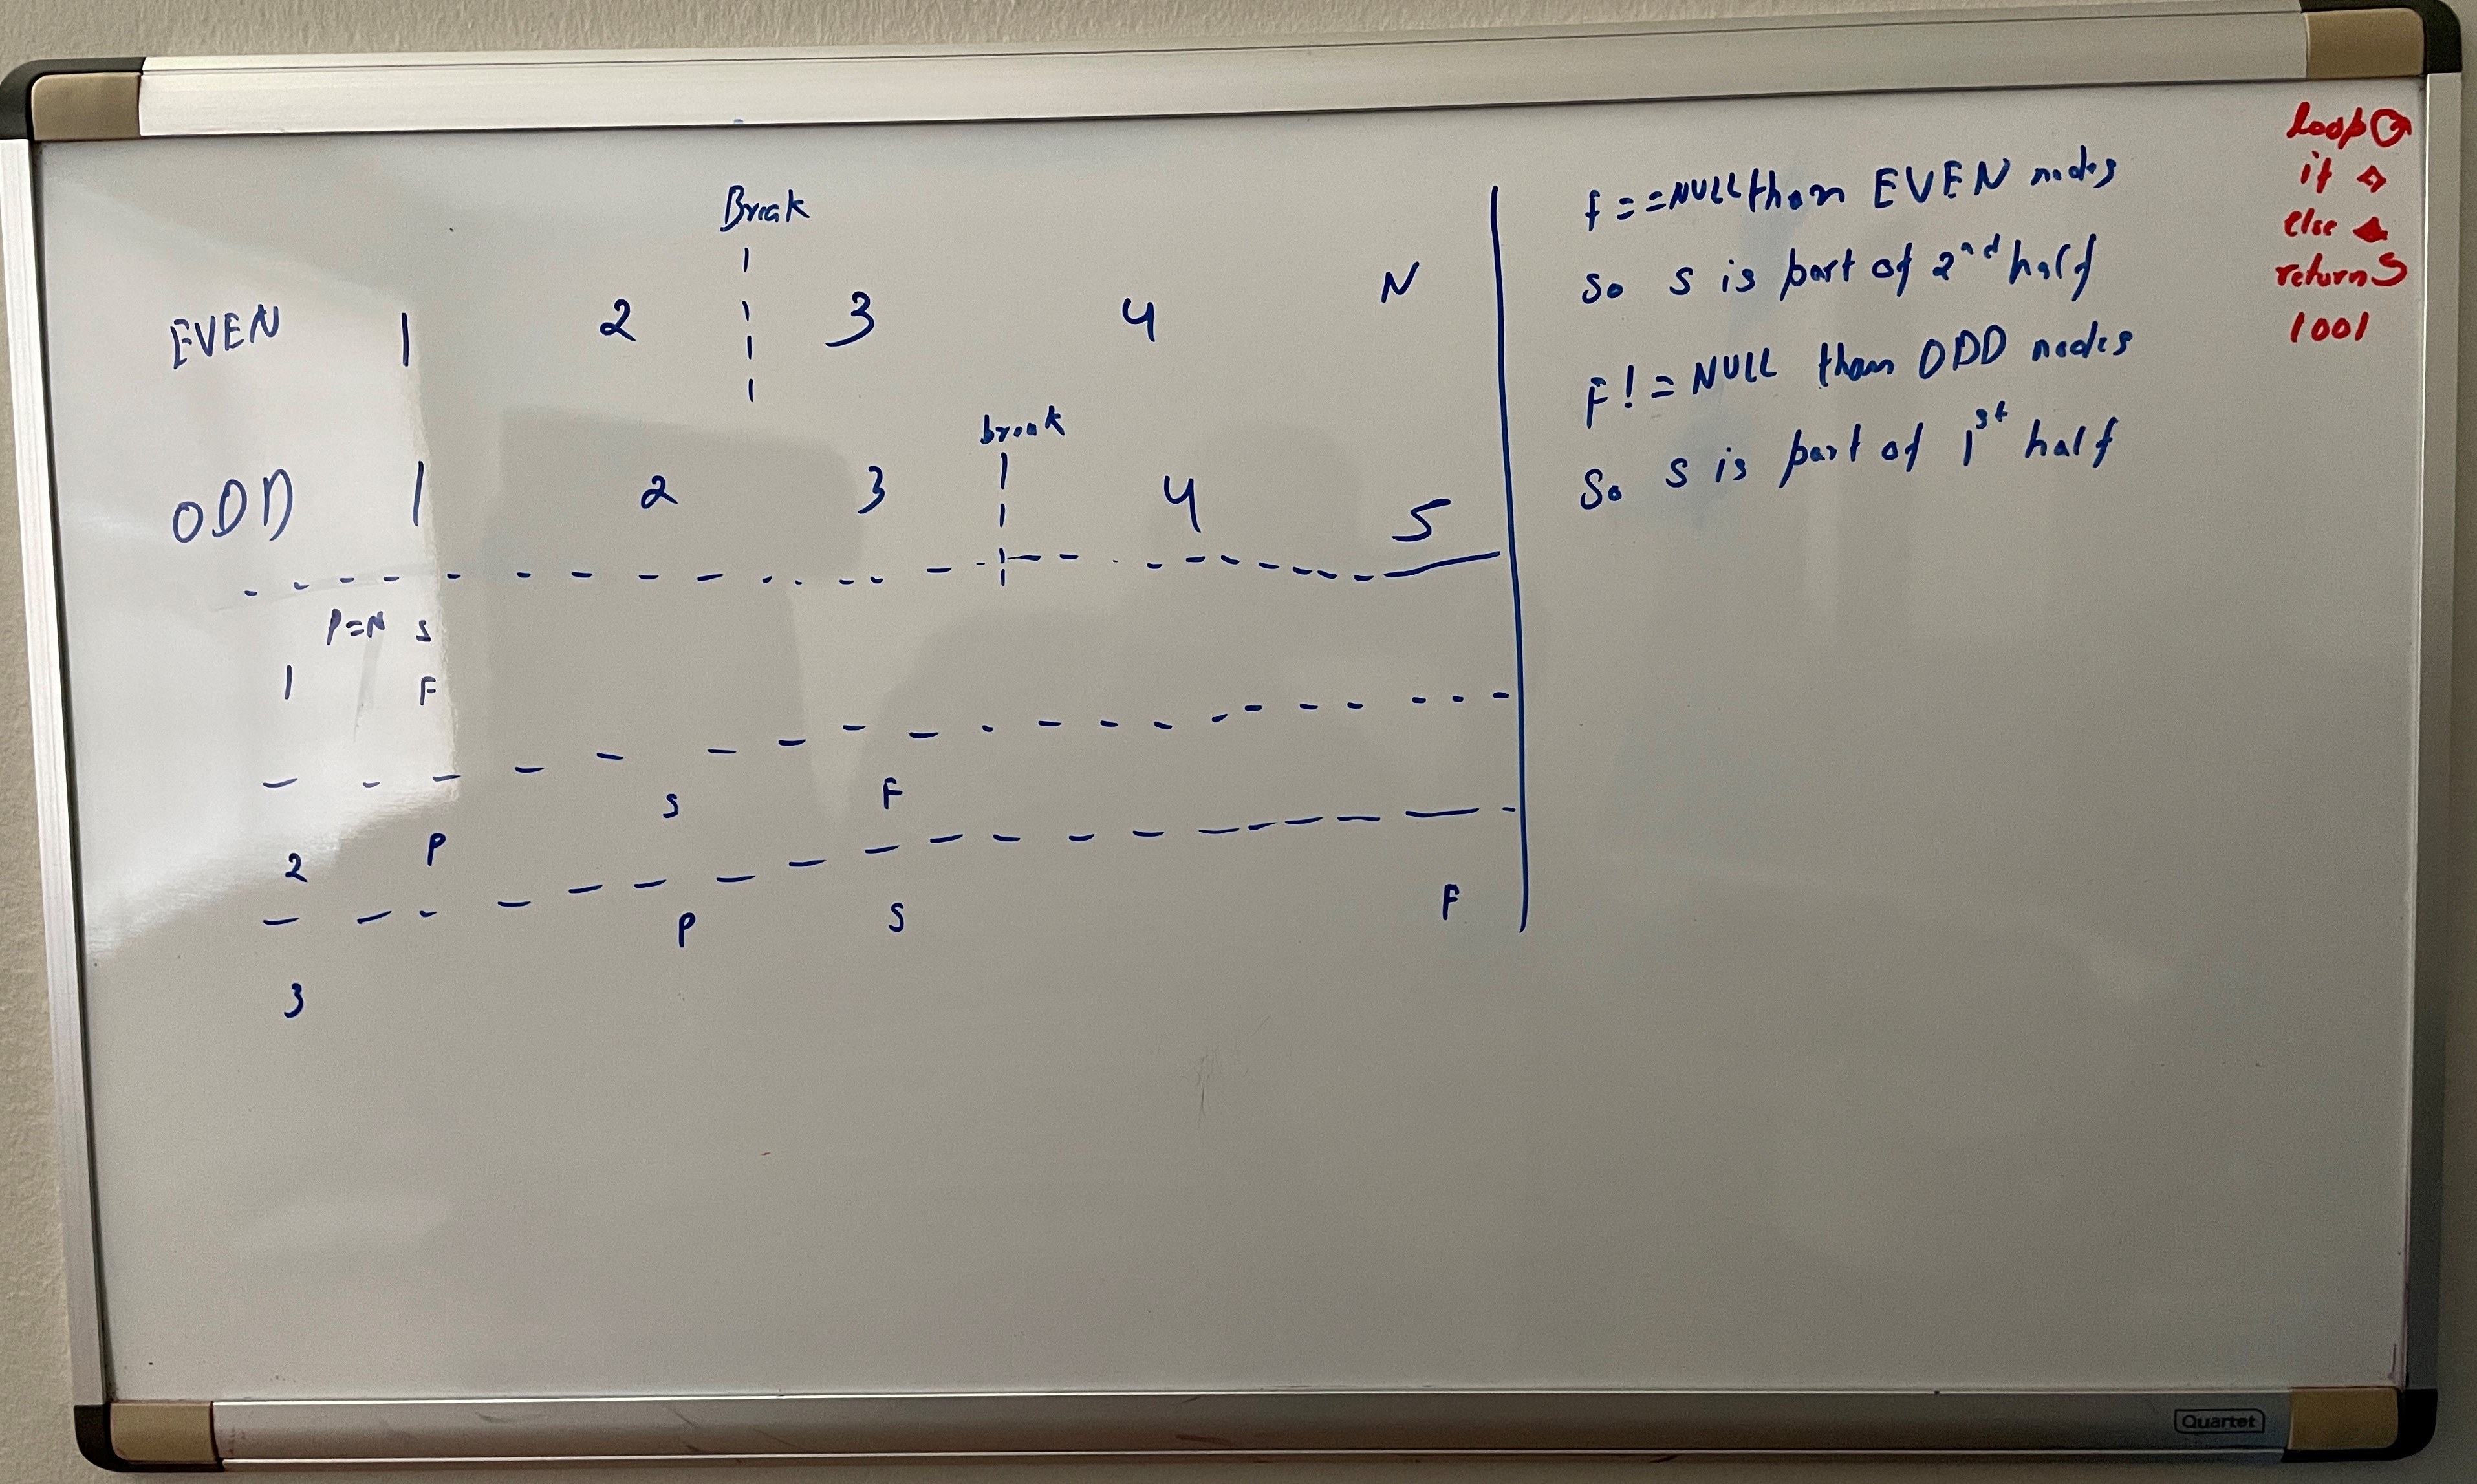 Break
EVEN 1 2 3 4 N
break
ODD 1 2 3 4 5
P=N S
1 F
S F
2 P
P S F
3
f==NULL than EVEN nodes
So S is part of 2nd half
F!=NULL than ODD nodes
So S is part of 1st half
loop
if
else
return S
1001
Quartet